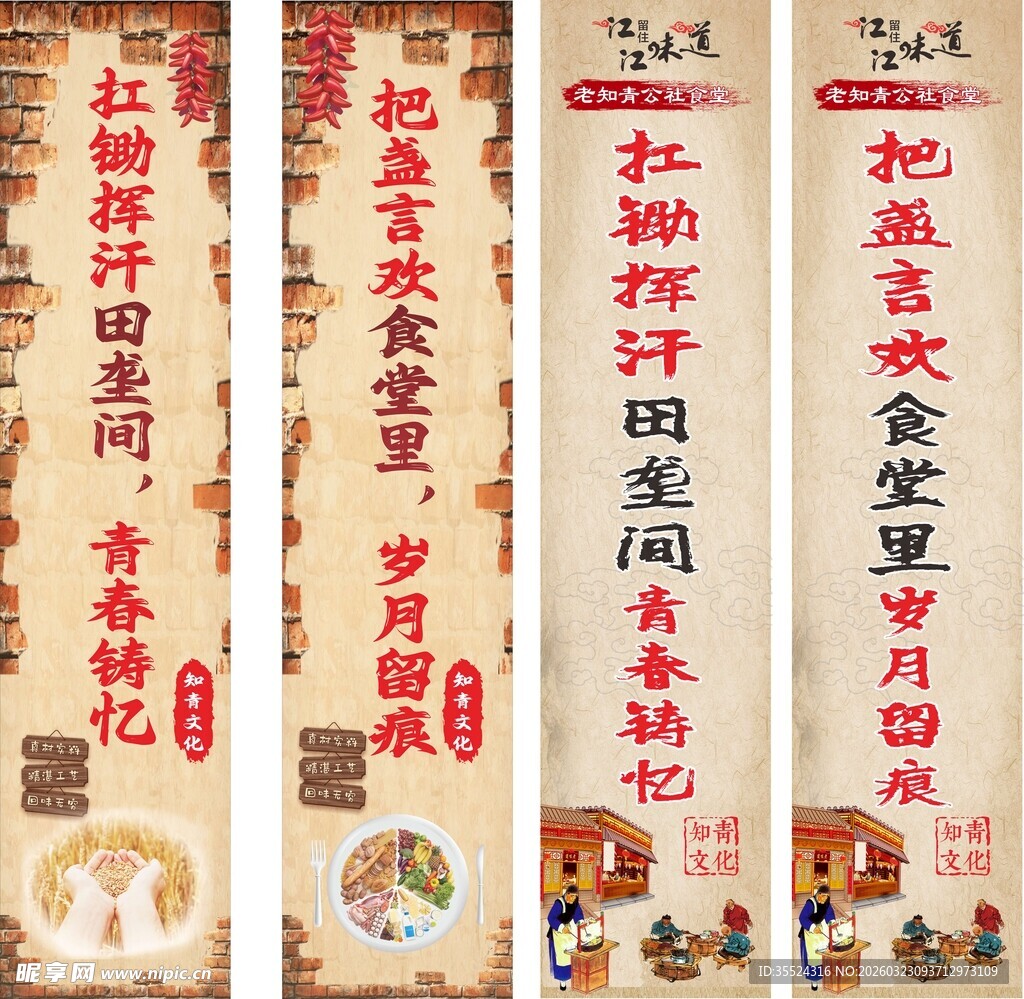 扛锄挥汗田垄间，
青春铸忆
知青文化
真材实料
精湛工艺
回味无穷
把盏言欢食堂里，
岁月留痕
知青文化
真材实料
精湛工艺
回味无穷
留住
江江味道
老知青公社食堂
扛锄挥汗田垄间
青春铸忆
知青
文化
留住
江江味道
老知青公社食堂
把盏言欢食堂里
岁月留痕
知青
文化
昵享网 www.nipic.cn
ID:35524316 NO:20260323093712973109